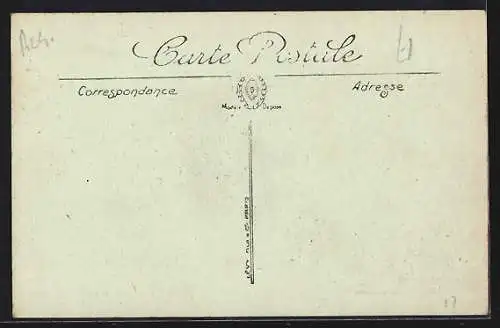 Carte Postale
Correspondance
Adresse
Modèle Déposé
17